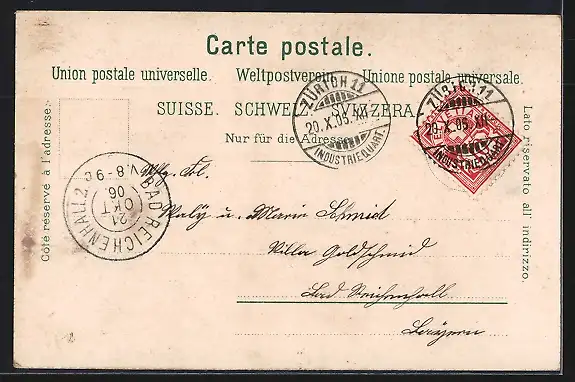 Carte postale.
Union postale universelle. Weltpostverein. Unione postale universale.
SUISSE. SCHWEIZ. SVIZZERA.
Nur für die Adresse.
Côté réservé à l'adresse.
Lato riservato all' indirizzo.
ZÜRICH 11
20.X.05.XII
INDUSTRIEQUART.
ZÜRICH 11
20.X.05.XII
INDUSTRIEQUART.
BAD REICHENHALL 2
21
OKT
06
V. 8-9
u. Schmid
Villa Goldschmid
Bad Reichenhall
Bayern